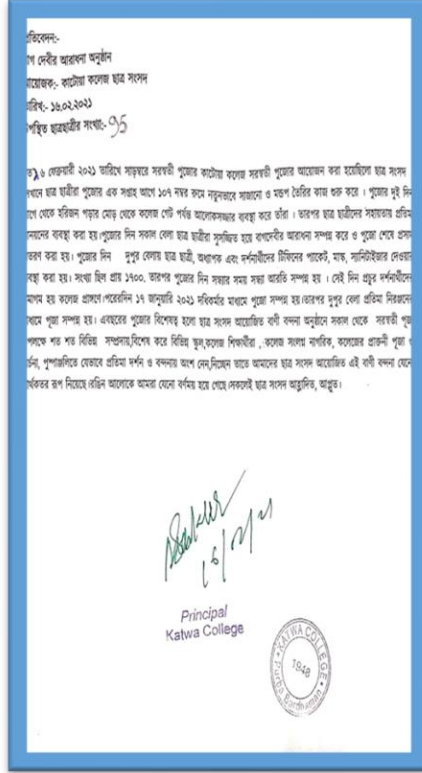 প্রতিবেদন:-
বাগ দেবীর আরাধনা অনুষ্ঠান
আয়োজক:- কাটোয়া কলেজ ছাত্র সংসদ
তারিখ:- ১৬.০২.২০২১
উপস্থিত ছাত্রছাত্রীর সংখ্যা:- 95
গত ১৬ ফেব্রুয়ারী ২০২১ তারিখে সাড়ম্বরে সরস্বতী পুজোর কাটোয়া কলেজ সরস্বতী পুজোর আয়োজন করা হয়েছিলো ছাত্র সংসদ
সেখানে ছাত্র ছাত্রীরা পুজোর এক সপ্তাহ আগে ১০৭ নম্বর রুমে নতুনভাবে সাজানো ও মন্ডপ তৈরির কাজ শুরু করে । পুজোর দুই দিন
আগে থেকে হরিজন পড়ার মোড় থেকে কলেজ গেট পর্যন্ত আলোকসজ্জার ব্যবস্থা করে তাঁরা । তারপর ছাত্র ছাত্রীদের সহায়তায় প্রতিমা
আনয়নের ব্যবস্থা করা হয়।পুজোর দিন সকাল বেলা ছাত্র ছাত্রীরা সুসজ্জিত হয়ে বাগদেবীর আরাধনা সম্পন্ন করে ও পুজো শেষে প্রসাদ
বিতরণ করা হয়। পুজোর দিন দুপুর বেলায় ছাত্র ছাত্রী, অধ্যাপক এবং দর্শনার্থীদের টিফিনের প্যাকেট, মাস্ক, স্যানিটাইজার দেওয়ার
ব্যবস্থা করা হয়। সংখ্যা ছিল প্রায় 1700, তারপর পুজোর দিন সন্ধ্যার সময় সন্ধ্যা আরতি সম্পন্ন হয় । সেই দিন প্রচুর দর্শনার্থীদের
সমাগম হয় কলেজ প্রাঙ্গণে।পরেরদিন ১৭ জানুয়ারি ২০২১ দধিকর্মার মাধ্যমে পুজো সম্পন্ন হয়।তারপর দুপুর বেলা প্রতিমা নিরঞ্জনের
মাধ্যমে পূজা সম্পন্ন হয়। এবছরের পুজোর বিশেষত্ব হলো ছাত্র সংসদ আয়োজিত বাণী বন্দনা অনুষ্ঠানে সকাল থেকে সরস্বতী পূজা
উপলক্ষে শত শত বিভিন্ন সম্প্রদায়,বিশেষ করে বিভিন্ন স্কুল,কলেজ শিক্ষার্থীরা , কলেজ সংলগ্ন নাগরিক, কলেজের প্রাক্তনী পূজা ও
অর্চনা, পুষ্পাঞ্জলিতে যেভাবে প্রতিমা দর্শন ও বন্দনায় অংশ নেন,নিচ্ছেন তাতে আমাদের ছাত্র সংসদ আয়োজিত এই বাণী বন্দনা যেনো
সার্থকতর রূপ নিয়েছে।রঙিন আলোকে আমরা যেনো বর্ণময় হয়ে গেছে।সকলেই ছাত্র সংসদ আহ্লাদিত, আপ্লুত।
Principal
Katwa College
KATWA COLLEGE
1948
Purba Bardhaman